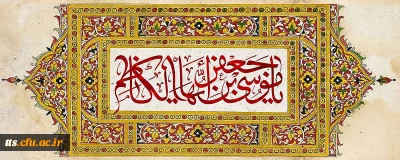 یا موسی بن جعفر ایها الکاظم
tts.cfu.ac.ir